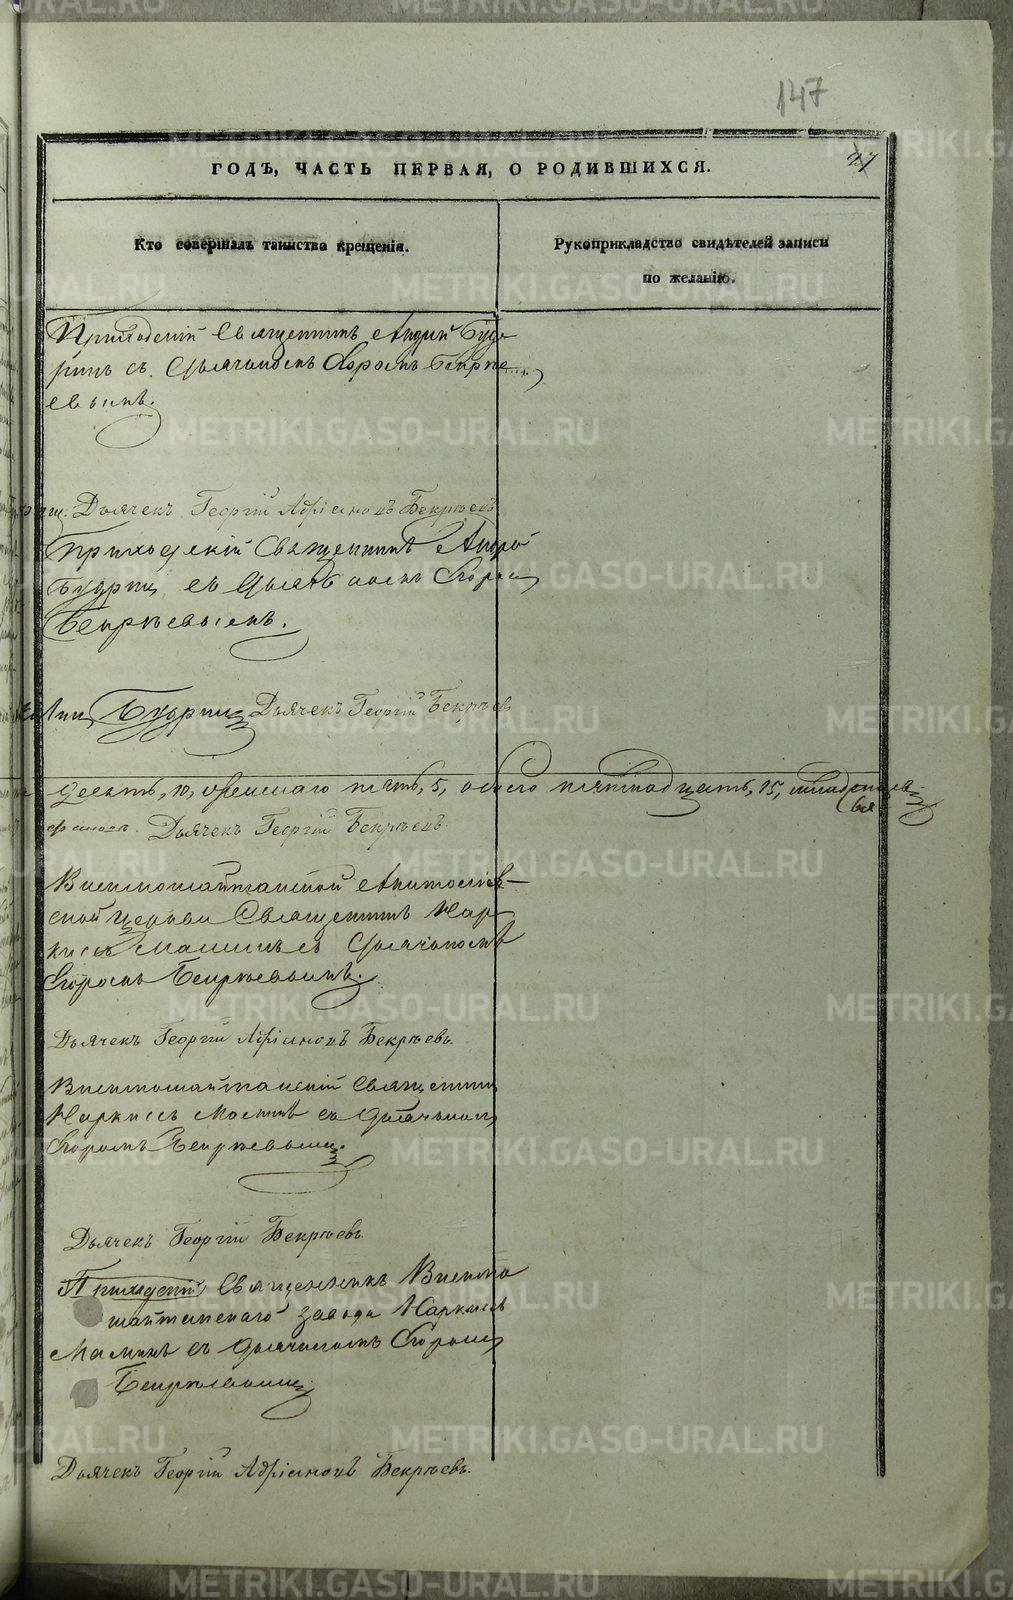 147
27
ГОДЪ, ЧАСТЬ ПЕРВАЯ, О РОДИВШИХСЯ.
Кто совершалъ таинство крещенія.
Рукоприкладство свидѣтелей записи
по желанію.
Приходскій Священникъ Андрей Буд-
ринъ съ Дьячкомъ Егоромъ Бекрѣ-
евымъ.
Дьячекъ Георгій Адріановъ Бекрѣевъ
Приходскій Священникъ Андрей
Будринъ съ Дьячкомъ Егоромъ
Бекрѣевымъ.
Будринъ Дьячекъ Георгій Бекрѣевъ
десять, 10, женскаго пять, 5, обоего пятнадцать, 15, младенцевъ
Дьячекъ Георгій Бекрѣевъ.
Висимошайтанской Анатоліев-
ской церкви Священникъ Нар-
кисъ Маминъ съ Дьячкомъ
Егоромъ Бекрѣевымъ.
Дьячекъ Георгій Адріановъ Бекрѣевъ.
Висимошайтанскій Священникъ
Наркисъ Маминъ съ Дьячкомъ
Егоромъ Бекрѣевымъ.
Дьячекъ Георгій Бекрѣевъ
Приходскій Священникъ Висимо
шайтанскаго завода Наркисъ
Маминъ съ дьячкомъ Егоромъ
Бекрѣевымъ
Дьячекъ Георгій Адріановъ Бекрѣевъ.
METRIKI.GASO-URAL.RU